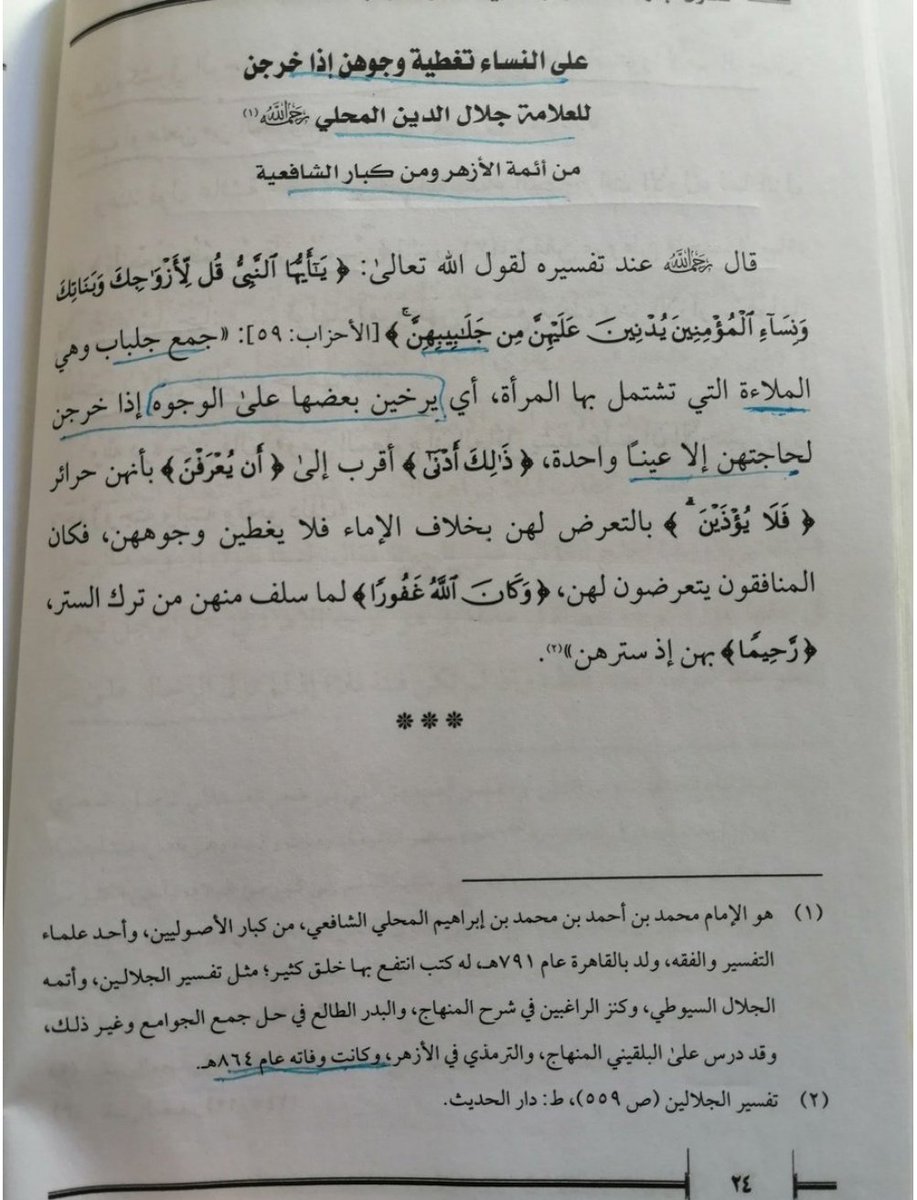 على النساء تغطية وجوههن إذا خرجن
للعلامة جلال الدين المحلي رَحِمَهُ اللَّهُ (١)
من أئمة الأزهر ومن كبار الشافعية
قال رَحِمَهُ اللَّهُ عند تفسيره لقول الله تعالىٰ: ﴿ يَٰٓأَيُّهَا ٱلنَّبِيُّ قُل لِّأَزْوَٰجِكَ وَبَنَاتِكَ
وَنِسَآءِ ٱلْمُؤْمِنِينَ يُدْنِينَ عَلَيْهِنَّ مِن جَلَٰبِيبِهِنَّ ۚ ﴾ [الأحزاب: ٥٩]: «جمع جلباب وهي
الملاءة التي تشتمل بها المرأة، أي يرخين بعضها علىٰ الوجوه إذا خرجن
لحاجتهن إلا عينًا واحدة، ﴿ ذَٰلِكَ أَدْنَىٰٓ ﴾ أقرب إلىٰ ﴿ أَن يُعْرَفْنَ ﴾ بأنهن حرائر
﴿ فَلَا يُؤْذَيْنَ ۗ ﴾ بالتعرض لهن بخلاف الإماء فلا يغطين وجوههن، فكان
المنافقون يتعرضون لهن، ﴿وَكَانَ ٱللَّهُ غَفُورًا﴾ لما سلف منهن من ترك الستر،
﴿رَّحِيمًا﴾ بهن إذ سترهن»(٢).
***
(١) هو الإمام محمد بن أحمد بن محمد بن إبراهيم المحلي الشافعي، من كبار الأصوليين، وأحد علماء
التفسير والفقه، ولد بالقاهرة عام ٧٩١هـ، له كتب انتفع بها خلق كثير؛ مثل تفسير الجلالين، وأتمه
الجلال السيوطي، وكنز الراغبين في شرح المنهاج، والبدر الطالع في حل جمع الجوامع وغير ذلك،
وقد درس علىٰ البلقيني المنهاج، والترمذي في الأزهر، وكانت وفاته عام ٨٦٤هـ.
(٢) تفسير الجلالين (ص ٥٥٩)، ط: دار الحديث.
٢٤